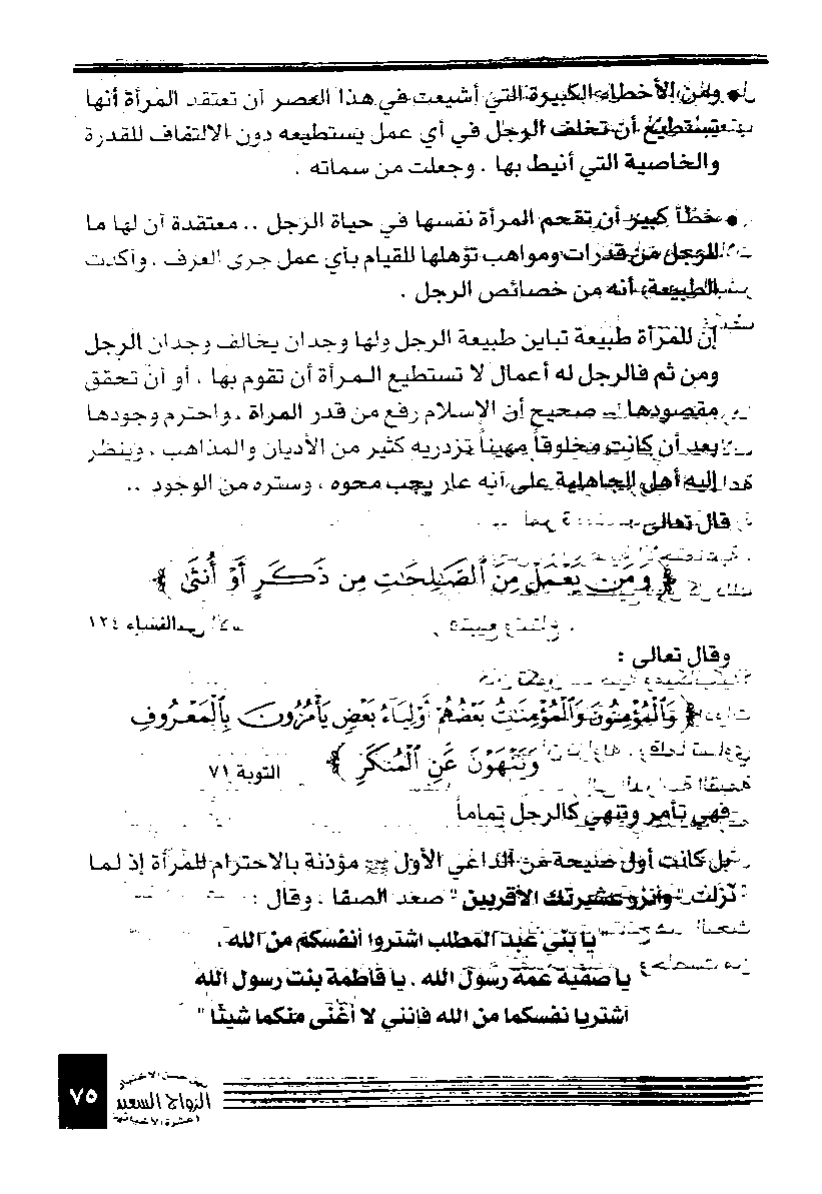 ● ومن الأخطاء الكبيرة التي أشيعت في هذا العصر أن تعتقد المرأة أنها
تستطيع أن تخلف الرجل في أي عمل يستطيعه دون الالتفاف للقدرة
والخاصية التي أنيط بها . وجعلت من سماته .
● خطأ كبير أن تقحم المرأة نفسها في حياة الرجل .. معتقدة أن لها ما
للرجل من قدرات ومواهب تؤهلها للقيام بأي عمل جرى العرف . وأكدت
الطبيعة، أنه من خصائص الرجل .
إن للمرأة طبيعة تباين طبيعة الرجل ولها وجدان يخالف وجدان الرجل
ومن ثم فالرجل له أعمال لا تستطيع المرأة أن تقوم بها . أو أن تحقق
مقصودها صحيح أن الإسلام رفع من قدر المرأة . واحترم وجودها
بعد أن كانت مخلوقاً مهيناً تزدريه كثير من الأديان والمذاهب . وينظر
إليه أهل الجاهلية على أنه عار يجب محوه ، وستره من الوجود ..
قال تعالى
﴿ وَمَن يَعْمَلْ مِنَ ٱلصَّٰلِحَٰتِ مِن ذَكَرٍ أَوْ أُنثَىٰ ﴾
النساء ١٢٤
وقال تعالى :
﴿ وَٱلْمُؤْمِنُونَ وَٱلْمُؤْمِنَٰتُ بَعْضُهُمْ أَوْلِيَآءُ بَعْضٍ يَأْمُرُونَ بِٱلْمَعْرُوفِ
وَيَنْهَوْنَ عَنِ ٱلْمُنكَرِ ﴾ التوبة ٧١
فهي تأمر وتنهي كالرجل تماماً
بل كانت أول صيحة من الداعي الأول ﷺ مؤذنة بالاحترام للمرأة إذ لما
نزلت " وأنزر عشيرتك الأقربين " صعد الصفا ، وقال :
" يا بني عبد المطلب اشتروا أنفسكم من الله ،
يا صفية عمة رسول الله . يا فاطمة بنت رسول الله
اشتريا نفسكما من الله فإنني لا أغنى منكما شيئًا "
حسن الاختيار
الزواج السعيد
٧٥